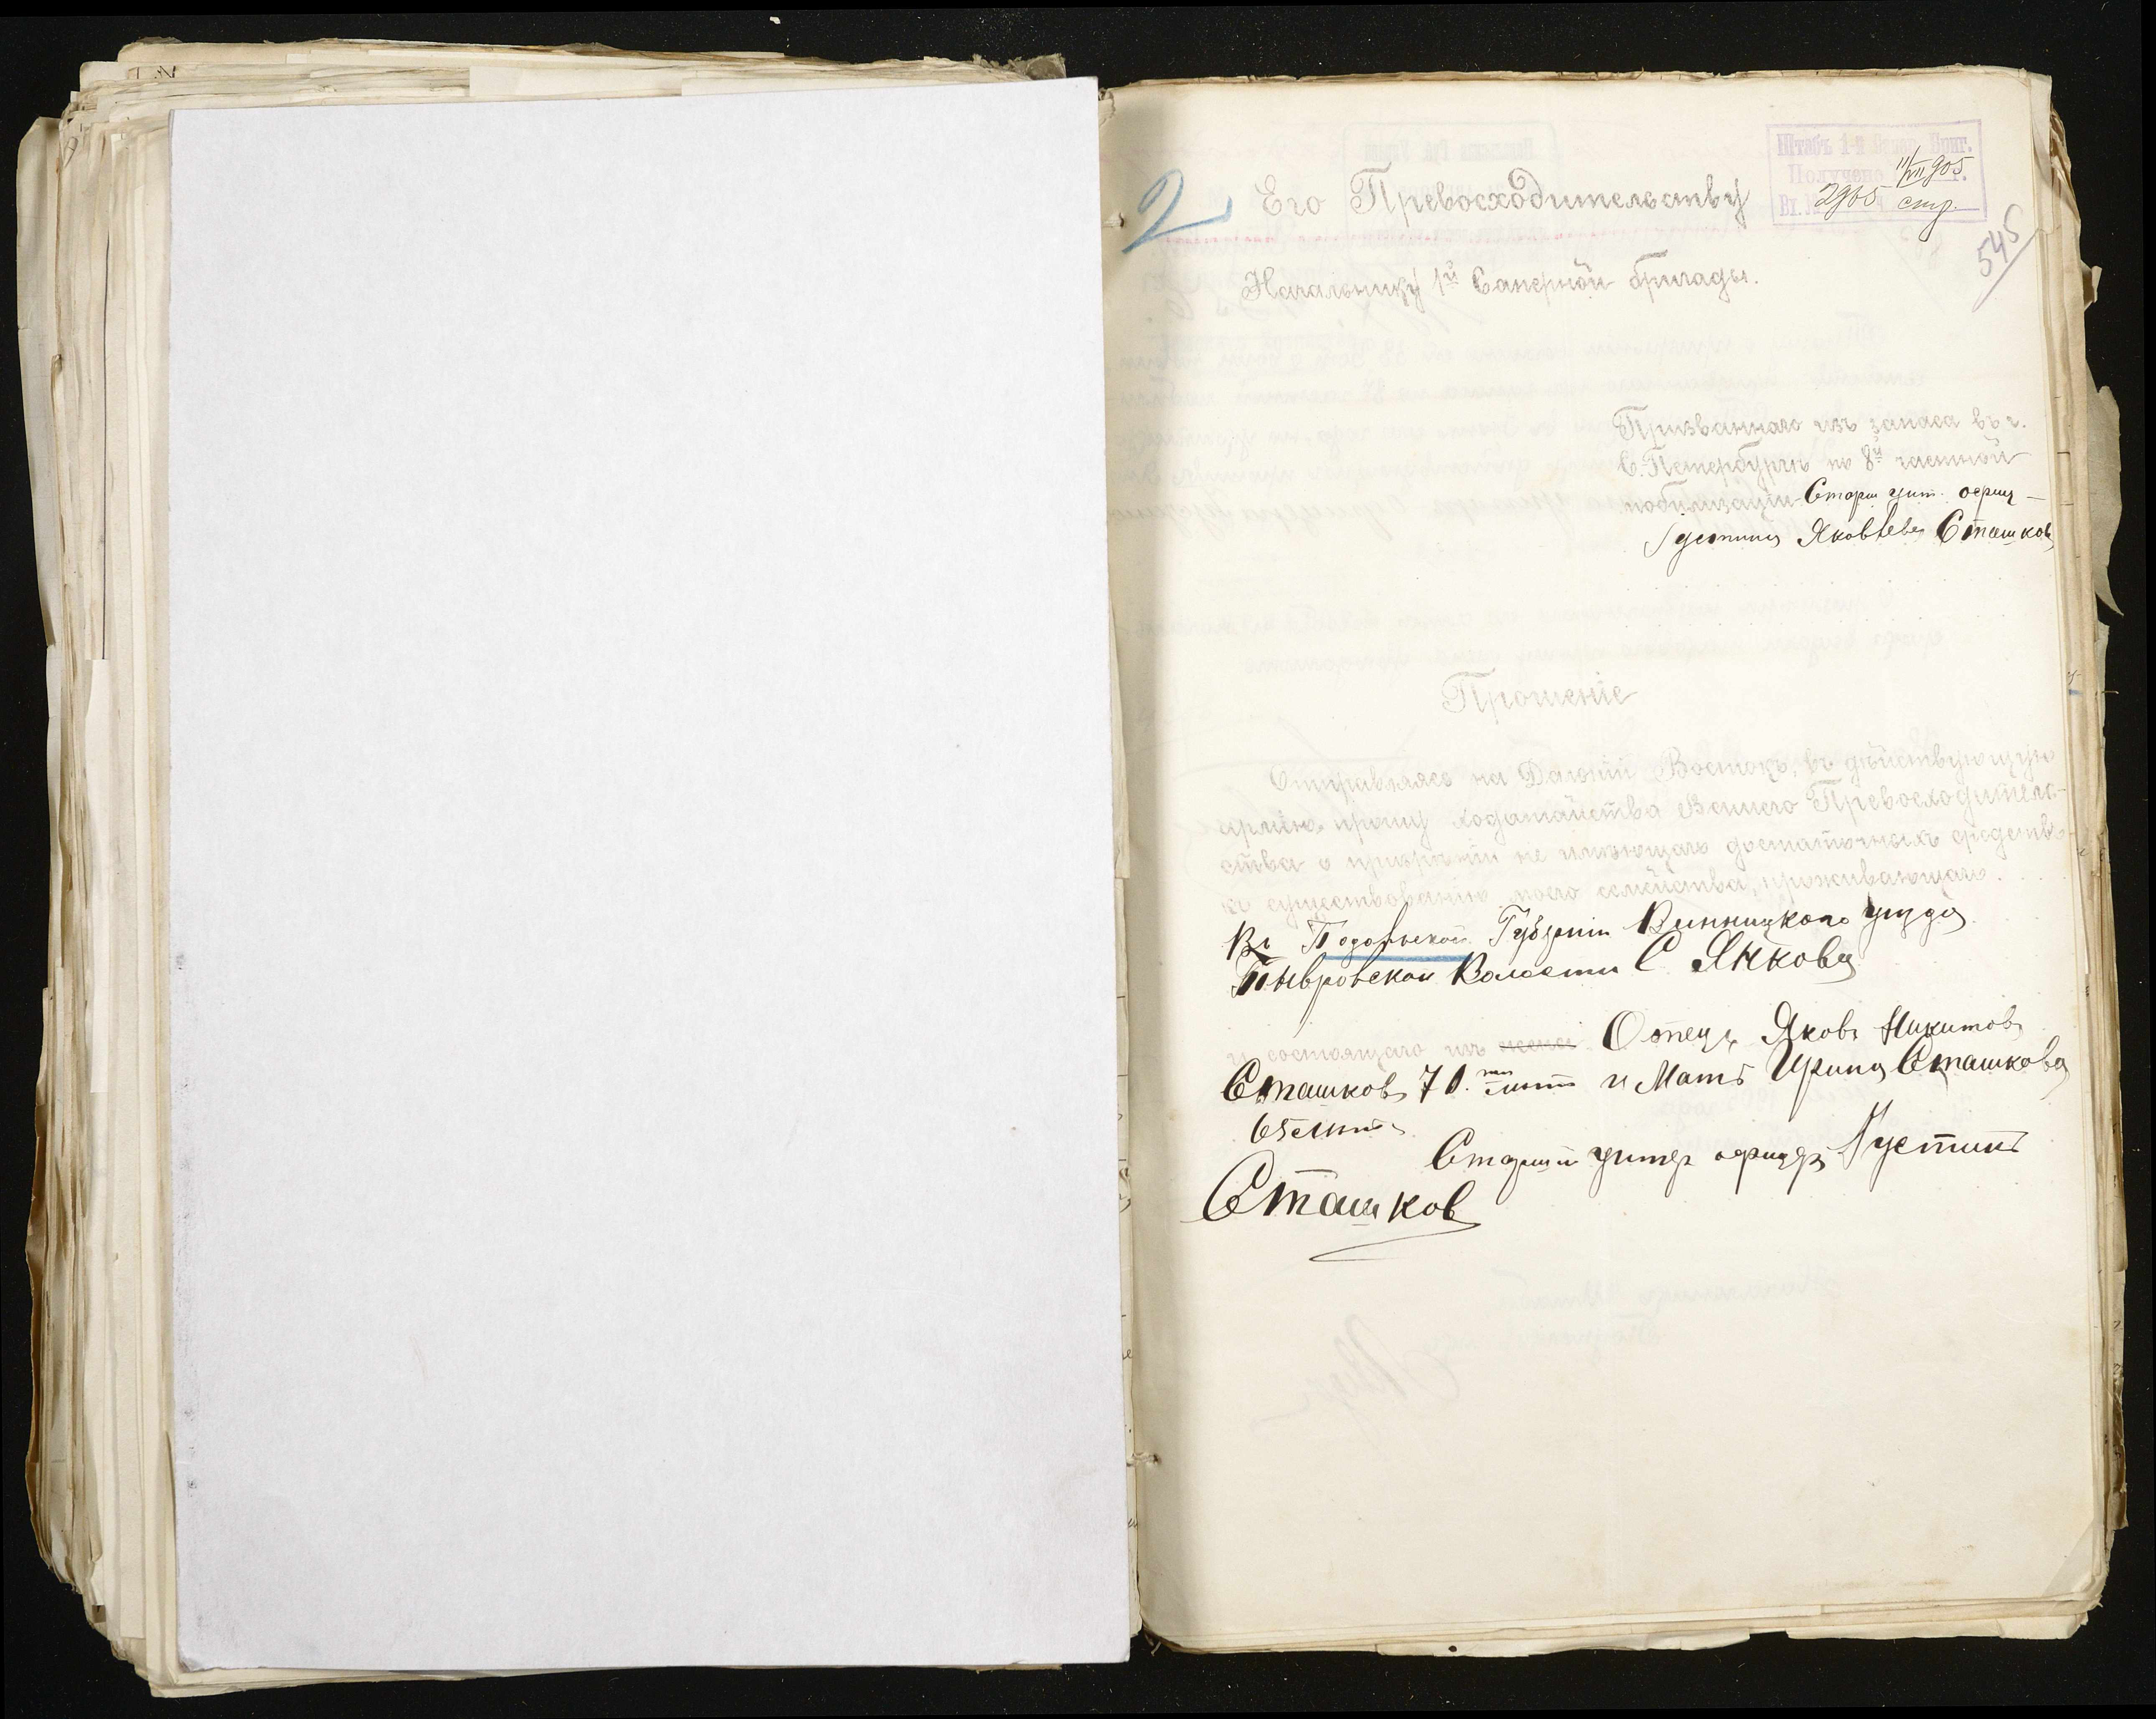 2
Штабъ 1-й Сапер. Бриг.
Получено 11/VII 905 г.
Вх. № 2965 стр.
545
Его Превосходительству
Начальнику 1й Саперной бригады.
Призваннаго изъ запаса въ г.
С.-Петербургѣ по 8й частной
мобилизаціи Старш унт. офиц –
Іустина Яковлева Сташков
Прошеніе
Отправляясь на Дальній Востокъ, въ дѣйствующую
армію прошу ходатайства Вашего Превосходитель-
ства о призрѣніи не имѣющаго достаточныхъ средствъ
къ существованію моего семейства, проживающаго
Въ Подольской Губерніи Винницкого уѣзда
Тывровской Волости С Янкова
и состоящаго изъ жены Отецъ Яковъ Никитовъ
Сташковъ 70. лѣтъ и Мать Ирина Сташкова
65 лѣтъ
Старшій унтеръ офицеръ Іустинъ
Сташков